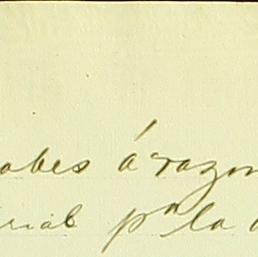 abes á razon
rial pa la